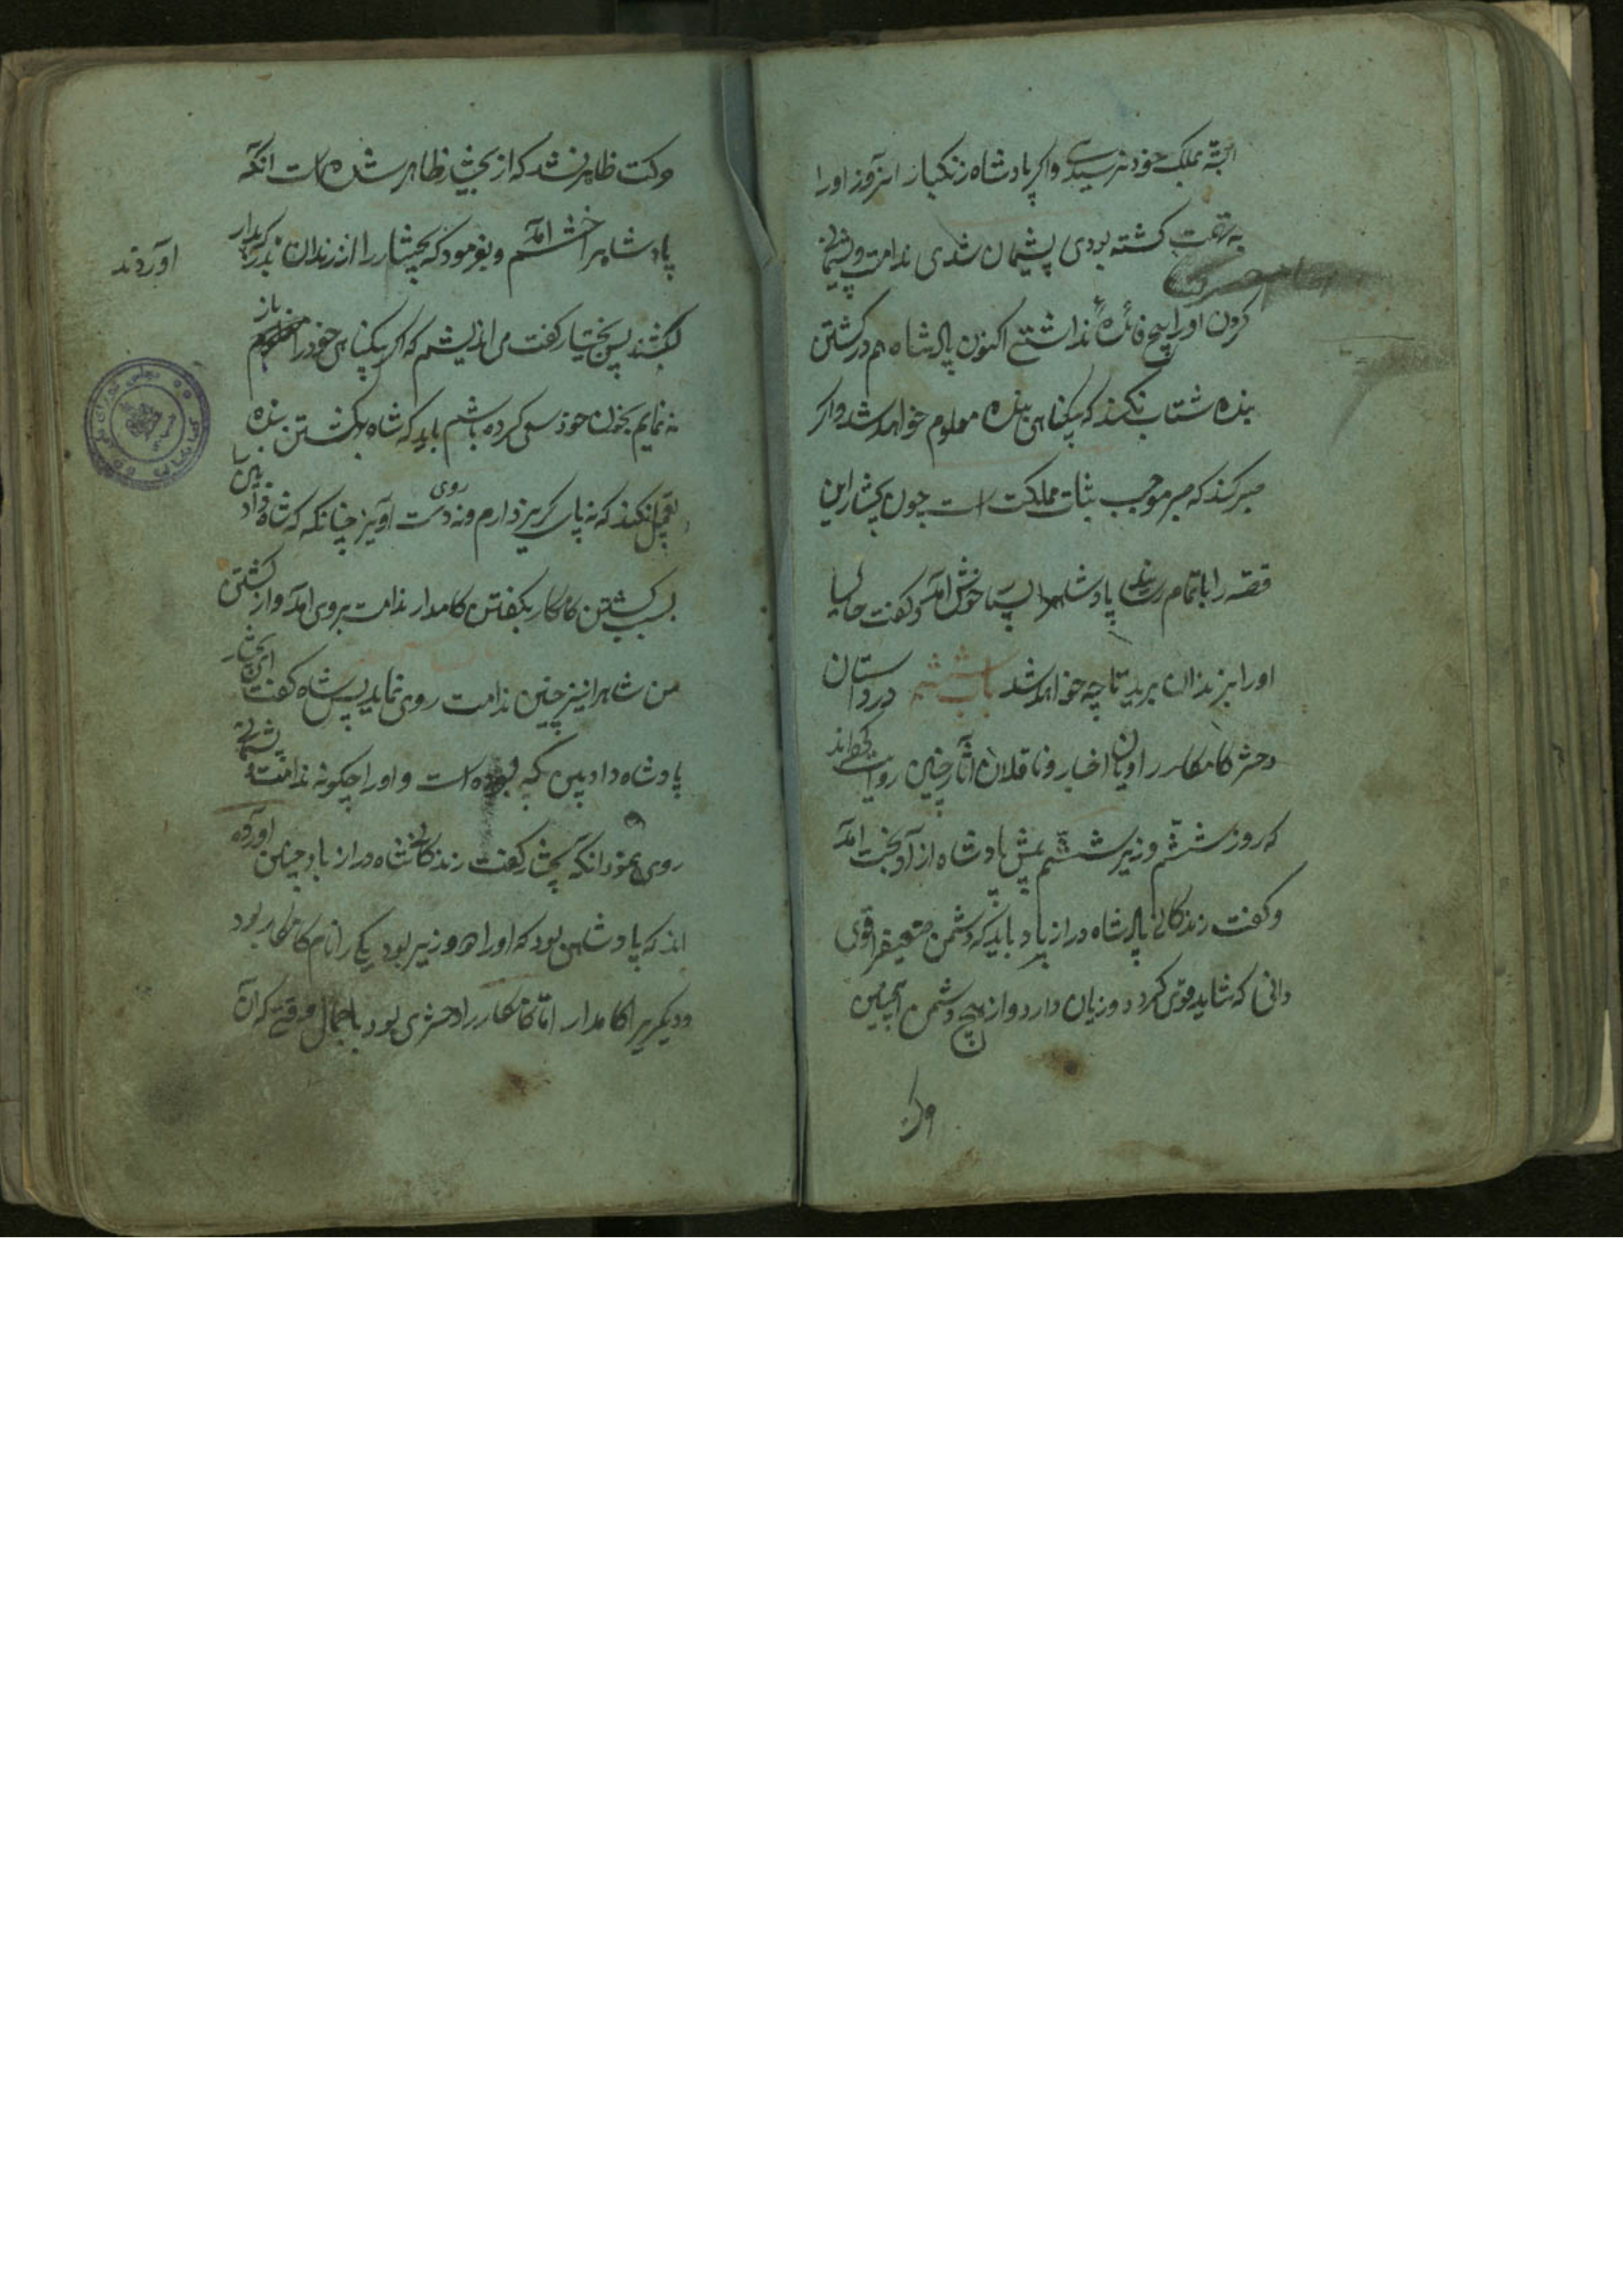 البته بملک خود نرسیدی واکر پادشاه زنکبار انروز اورا
به تهمت کشته بودی پشیمان شدی ندامت وپشیمانی
کردن اورا هیچ فائده نداشتے اکنون پادشاه هم در کشتن
بنده شتاب نکند که بیکناهی بنده معلوم خواهد شد واکر
صبر کند که صبر موجب ثبات مملکت است چون بختیار این
قصه را باتمام رسانید پادشاهرا بسیار خوش امد وکفت حالیا
اورا بزندان برید تا چه خواهد شد باب ششم در داستان
دختر کامکار راویان اخبار وناقلان آثار چنین روایت کرده اند
که روز ششم وزیر ششم پیش پادشاه ازادبخت امد
وکفت زندکانے پادشاه دراز باد باید که دشمن ضعیفرا قوی
دانی که شاید قوی کردد وزیان دارد واز هیچ دشمن انچنین
وکت ظاهر نشد که از بختیار ظاهر شده است انکه
پادشاهرا خشم امد وبفرمود که بختیار را از زندان بدر کردار
اوردند
بکشند پس بختیار کفت می اندیشم که اکر بیکناهی خود را باز
نه نمایم بخون خود سعی کرده باشم باید که شاه بکشتن بنده
تعجیل نکند که نه پای کریز دارم ونه روی دست اویز چنانکه که شاه دادبین
بسبب کشتن کامکار بکفتن کامدار ندامت بروی امد واز کشتن
من شاهرا نیز چنین ندامت روی نماید پس شاه کفت ای بختیار
پادشاه دادبین که بوده است و اورا چکونه ندامت پشیمانے
روی نمود انکه بختیار کفت زندکانے شاه دراز باد چنین اورده
اند که پادشاهی بود که اورا دو وزیر بود یکے را نام کامکار بود
ودیکریرا کامدار اما کامکار را دختری بود باجمال وقتے که آن